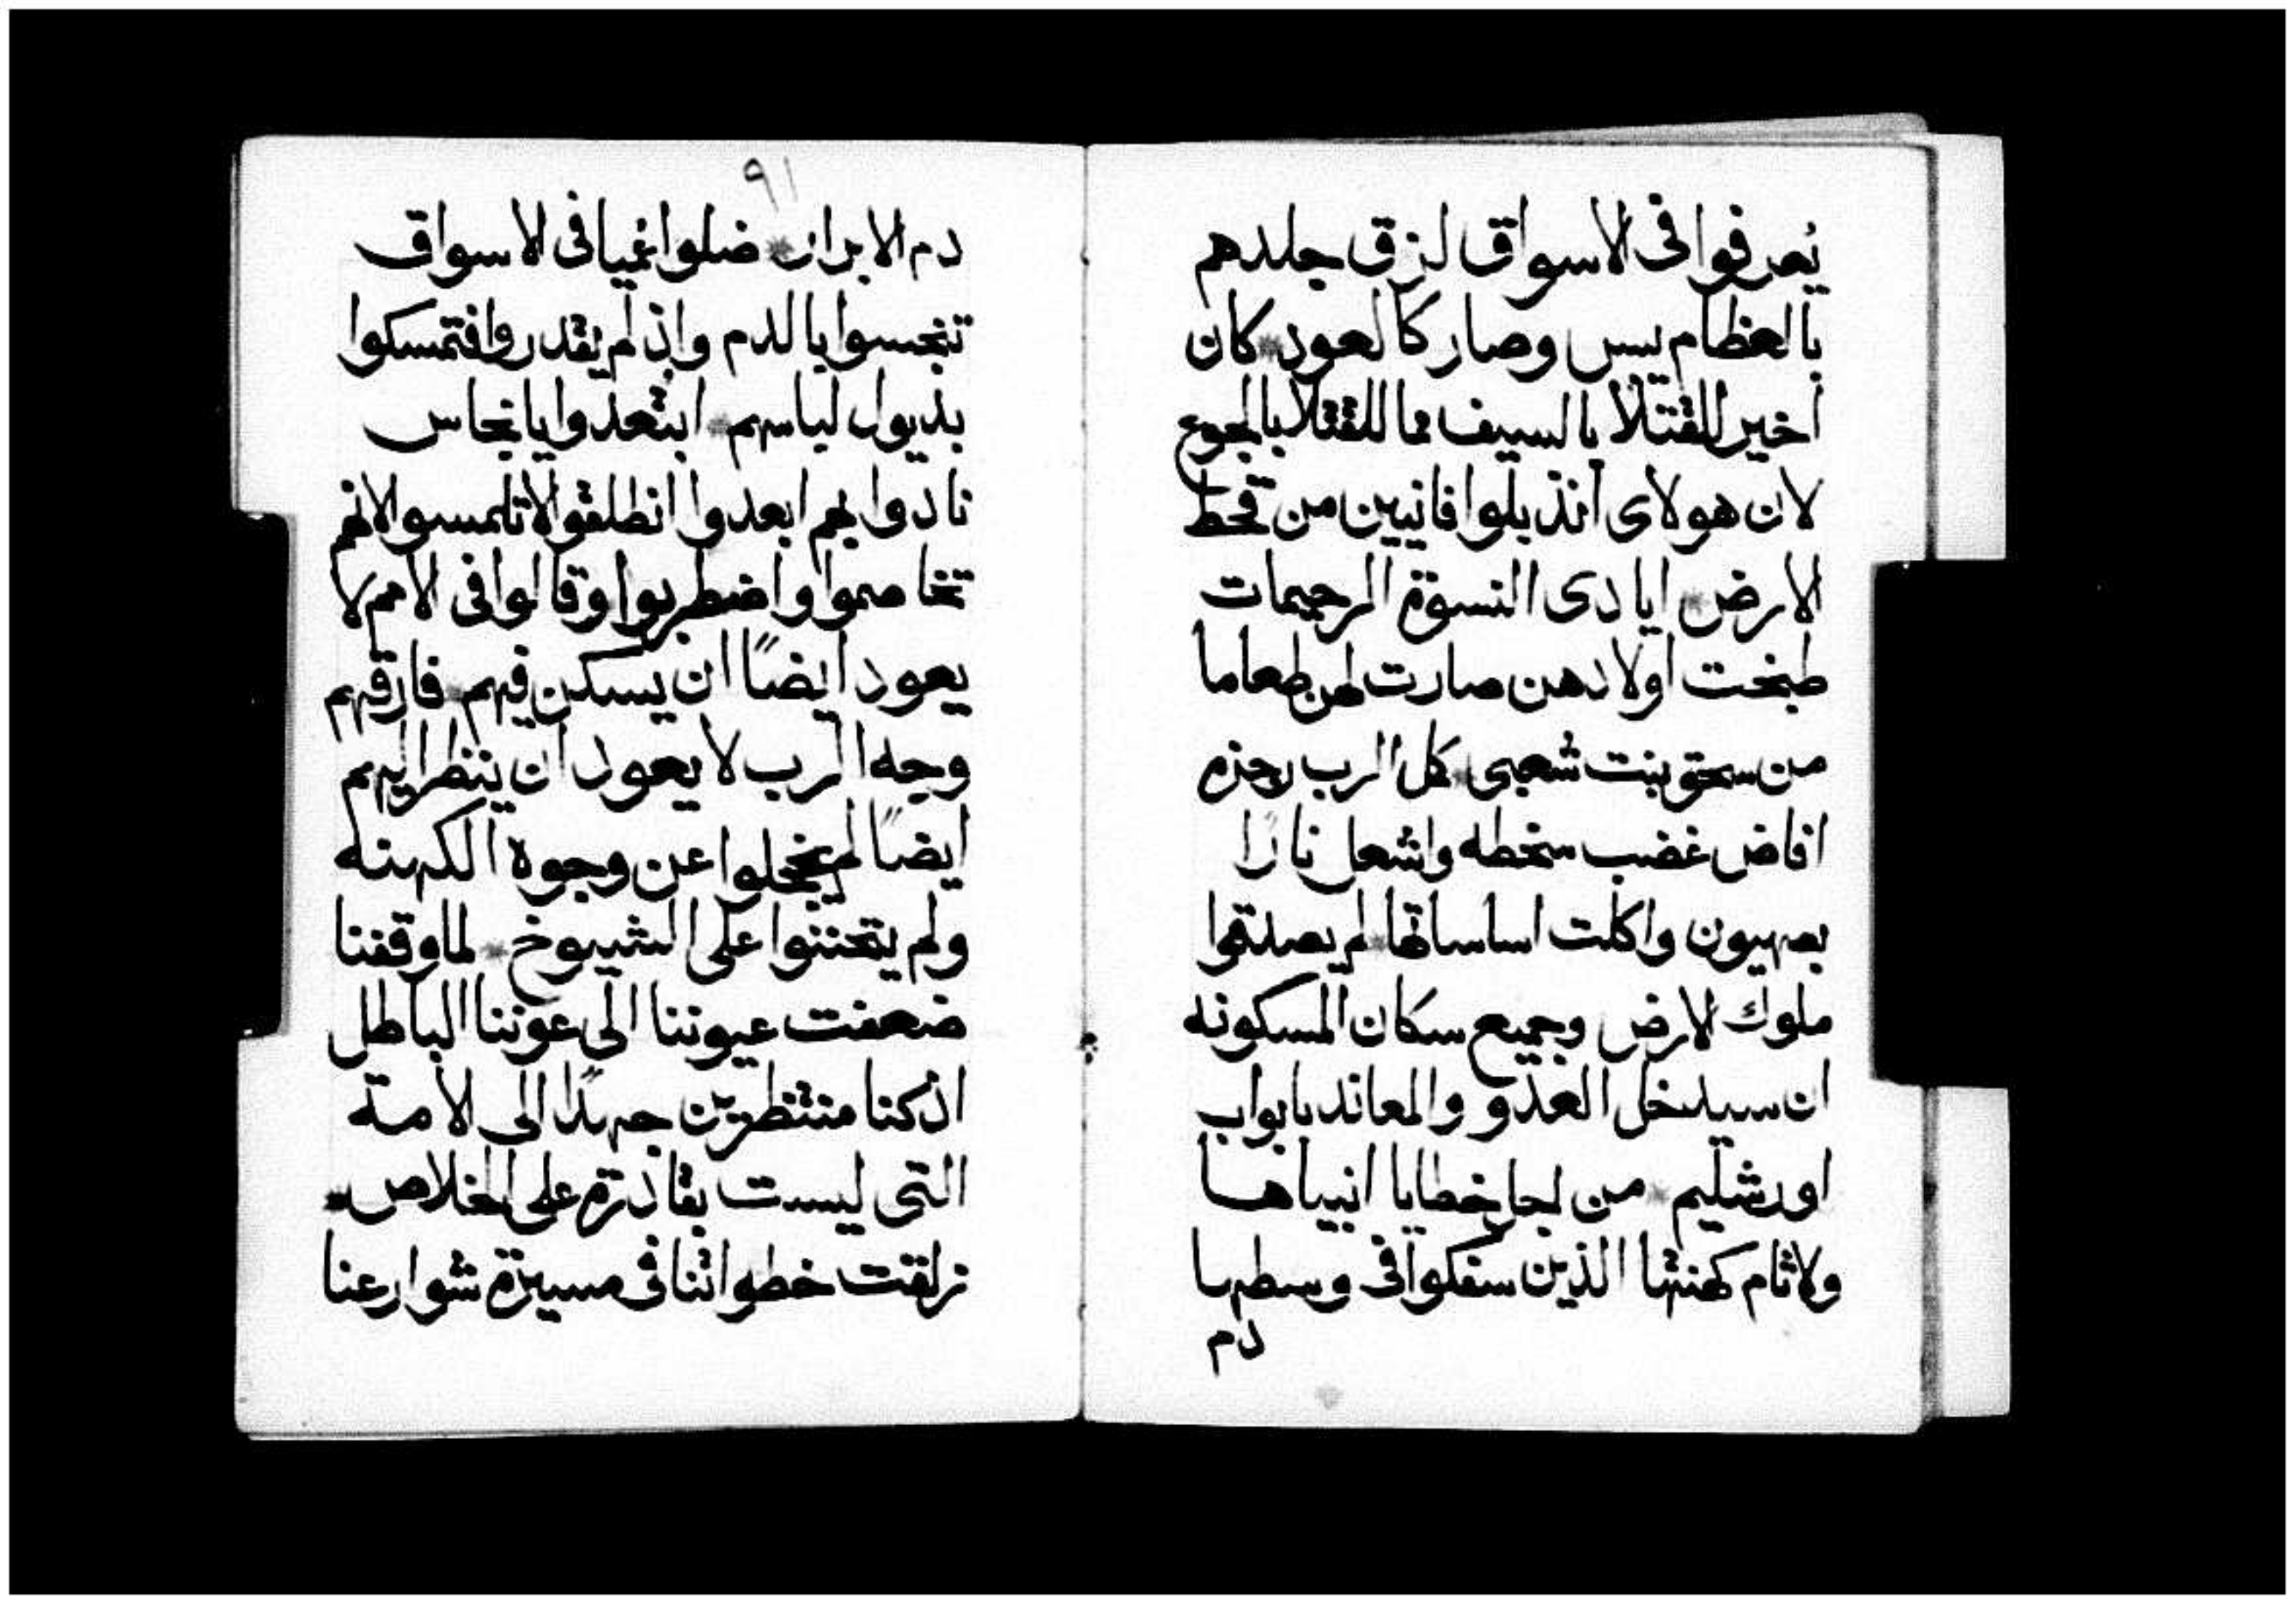 يُعرفوا فى الاسواق لزق جلدهم
بالعظام يبس وصار كالعود كان
اخير للقتلا بالسيف مما للقتلا بالجوع
لان هولاى انذبلوا فانيين من قحط
الارض ايادى النسوة الرحيمات
طبخت اولادهن صارت لهن طعاما
من سحق بنت شعبى كمل الرب رجزه
افاض غضب سخطه واشعل نارًا
بصهيون واكلت اساساتها لم يصدقوا
ملوك الارض وجميع سكان المسكونه
ان سيدخل العدو والمعاند بابواب
اورشليم من لجل خطايا انبياها
ولاثام كهنتها الذين سفكوا فى وسطها
دم
٩١
دم الابرار ضلوا عميا فى الاسواق
تنجسوا بالدم واذ لم يقدروا فتمسكوا
بذيول لباسهم ابتعدوا يا نجاس
نادوا بهم ابعدوا انطلقوا لا تلمسوا لانهم
تخاصموا واضطربوا وقالوا فى الامم لا
يعود ايضًا ان يسكن فيهم فارقهم
وجه الرب لا يعود ان ينظر اليهم
ايضًا لم يخجلوا عن وجوه الكهنه
ولم يتحننوا على الشيوخ لما وقفنا
ضعفت عيوننا الى عوننا الباطل
اذ كنا منتظرين جهدًا الى الامة
التى ليست بقادرة على الخلاص
زلقت خطواتنا فى مسيرة شوارعنا